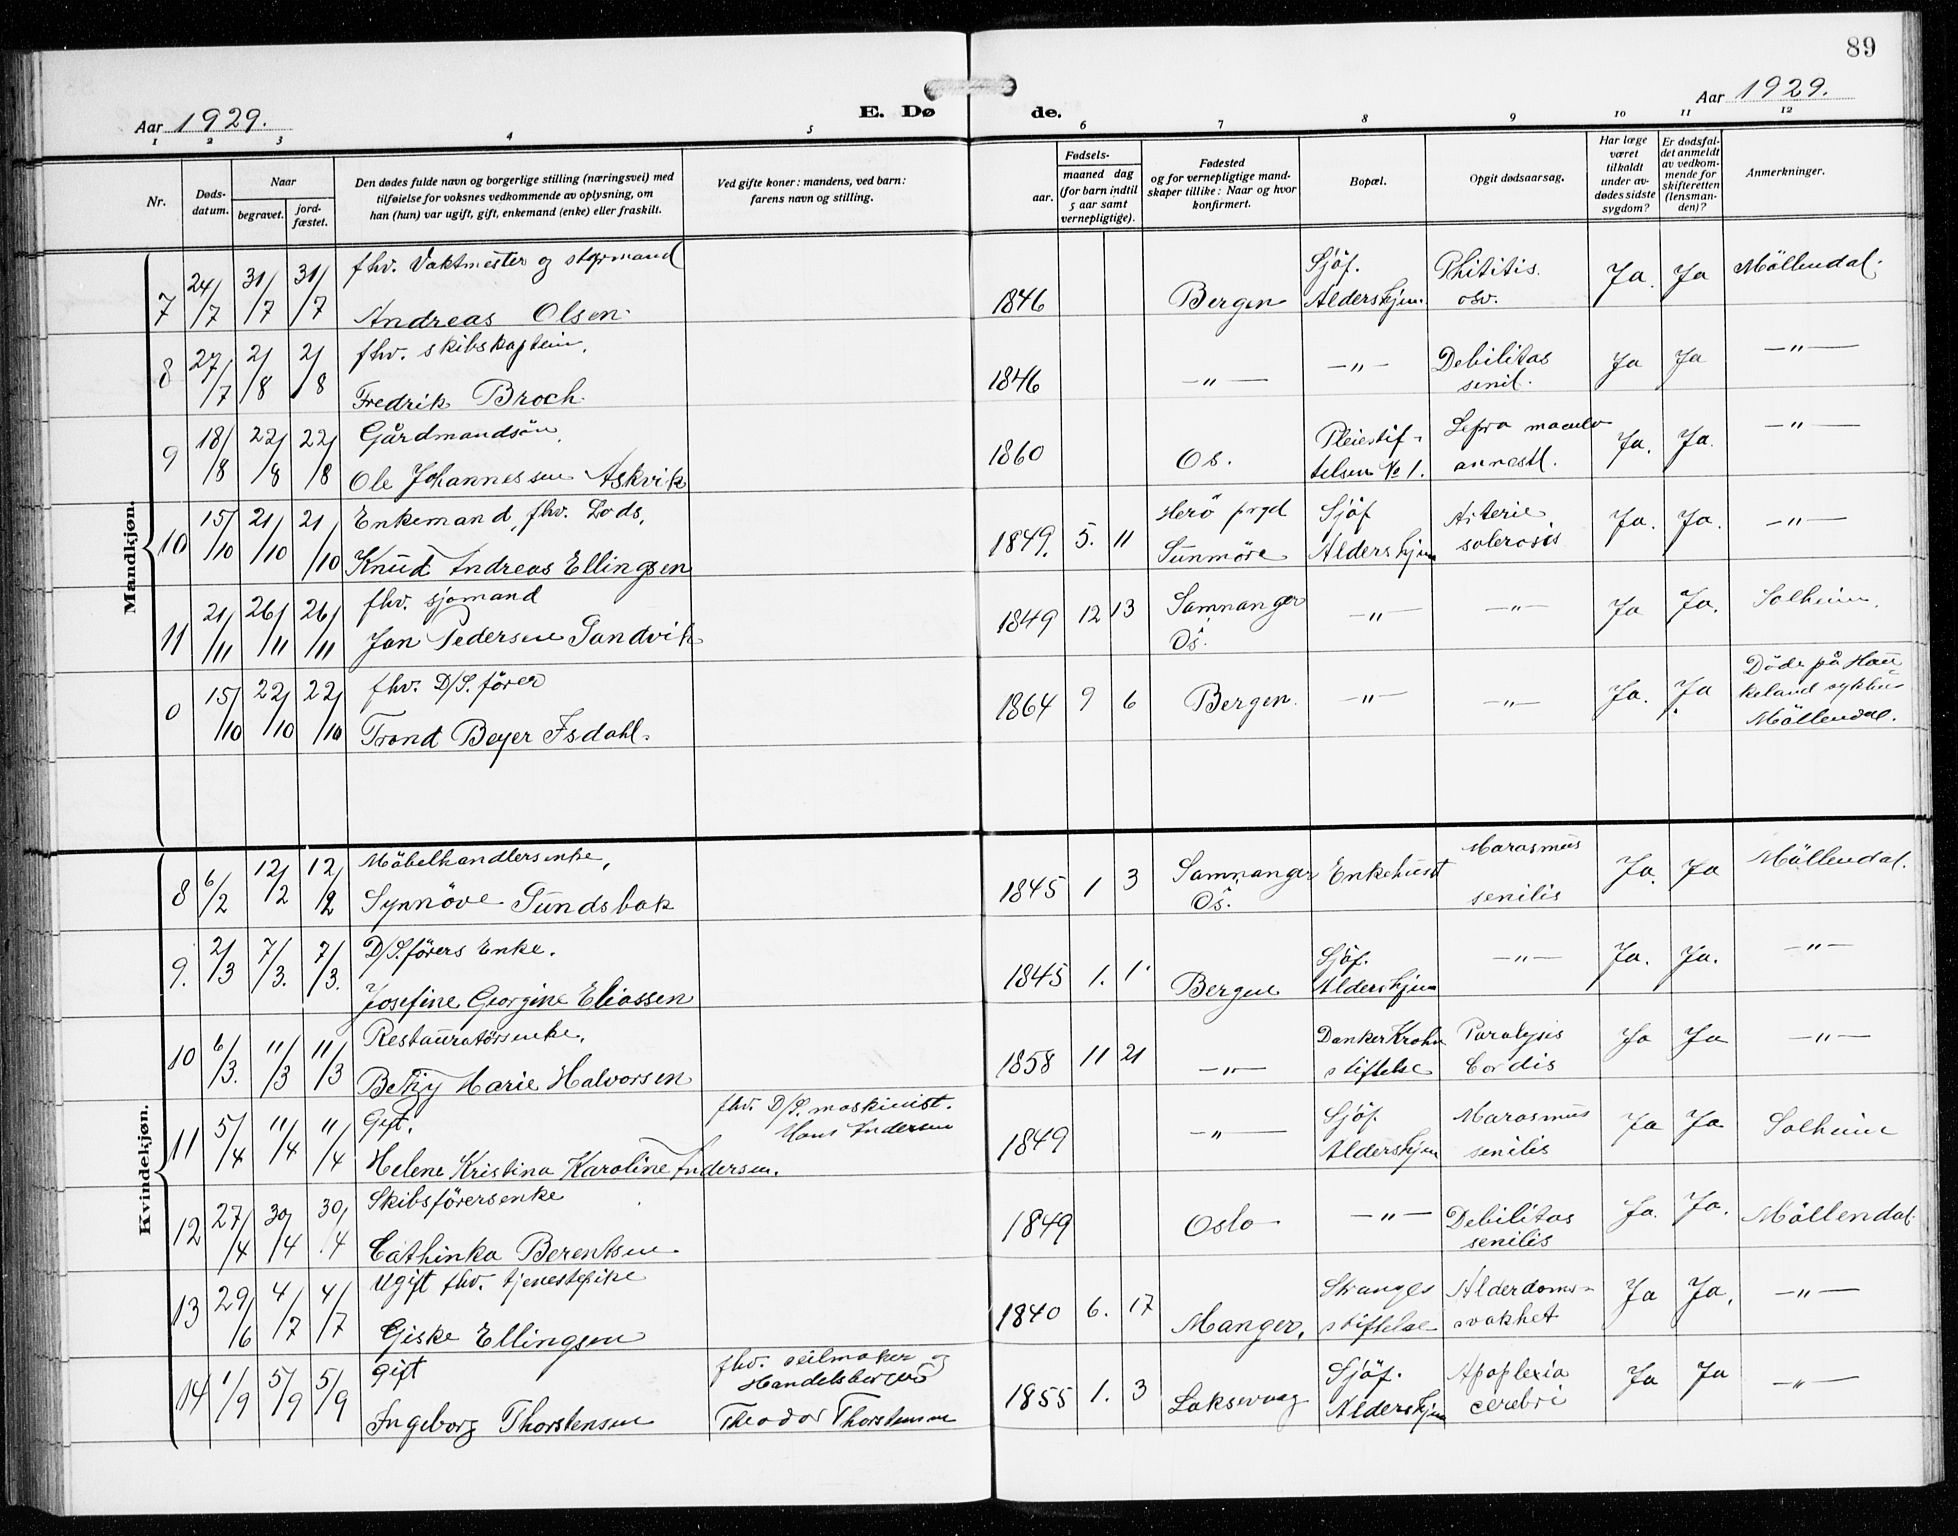 89
Aar 1929.
E. Døde.
Aar 1929.
1 2 3 4 5 6 7 8 9 10 11 12
Nr.
Døds-
datum.
Naar
begravet.
jord-
fæstet.
Den dødes fulde navn og borgerlige stilling (næringsvei) med
tilføielse for voksnes vedkommende av oplysning, om
han (hun) var ugift, gift, enkemand (enke) eller fraskilt.
Ved gifte koner: mandens, ved barn:
farens navn og stilling.
Fødsels-
aar.
maaned dag
(for barn indtil
5 aar samt
vernepligtige).
Fødested
og for vernepligtige mand-
skaper tillike: Naar og hvor
konfirmert.
Bopæl.
Opgit dødsaarsag.
Har læge
været
tilkaldt
under av-
dødes sidste
sygdom?
Er dødsfal-
det anmeldt
av vedkom-
mende for
skifteretten
(lensman-
den)?
Anmerkninger.
Mandkjøn.
7 24/7 31/7 31/7 fhv. Vaktmester og styrmand
Andreas Olsen. 1846 Bergen Sjöf.
Aldershjem. Phititis.
osv. Ja. Ja Möllendal.
8 27/7 2/8 2/8 fhv. skibskaptein.
Fredrik Broch. 1846 -"- -"- Debilitas
senil. Ja Ja -"-
9 18/8 22/8 22/8 Gårdmandsön.
Ole Johannessen Askvik 1860 Os. Pleiestif-
telsen No 1. Lepra maculo
annestl. Ja. Ja. -"-
10 15/10 21/10 21/10 Enkemand, fhv. Lods,
Knud Andreas Ellingsen 1849. 5. 11 Herö prgd
Sunmöre Sjöf
Aldershjem Arterie
sclerosis Ja. Ja. -"-
11 21/11 26/11 26/11 fhv. sjømand
Jan Pedersen Sandvik 1849 12 13 Samnanger
Os. -"- -"- Ja Ja. Solheim.
0 15/10 22/10 22/10 fhv. D/S. förer
Trond Beyer Isdahl. 1864 9 6 Bergen. -"- -"- Ja. Ja Döde på Hau
keland sykhus
Möllendal.
Kvindekjøn.
8 6/2 12/2 12/2 Möbelhandlersenke,
Synnöve Tundsbak 1845 1 3 Samnanger
Os. Enkehuset Marasmus
senilis Ja. Ja Möllendal.
9. 2/3 7/3. 7/3. D/S. förers Enke.
Josefine Georgine Eliassen 1845 1. 1. Bergen Sjöf.
Aldershjem -"- Ja. Ja. -"-
10 6/3. 11/3 11/3 Restauratörsenke.
Betzy Marie Halvorsen 1858 11 21 -"- Danker Krohn
stiftelse Paralysis
Cordis Ja Ja -"-
11 5/4 11/4 11/4 Gift.
Helene Kristina Karoline Andersen. fhv. D/S. maskinist.
Hans Andersen 1849 -"- Sjöf.
Aldershjem Marasmus
senilis Ja Ja Solheim
12 27/4 30/4 30/4 Skibsförersenke
Cathinka Berentsen. 1849 Oslo -"- Debilitas
senilis Ja. Ja. Möllendal.
13 29/6 4/7 4/7 Ugift fhv. tjenestepike
Giske Ellingsen 1840 6. 17 Manger. Stranges
stiftelse Alderdoms-
svakhet Ja Ja. -"-
14 1/9 5/9 5/9 Gift
Ingeborg Thorstensen fhv. seilmaker og
Handelsborger
Theodor Thorstensen 1855 1. 3 Laksevaag Sjöf.
Aldershjem Apoplexia
cerebri Ja Ja -"-